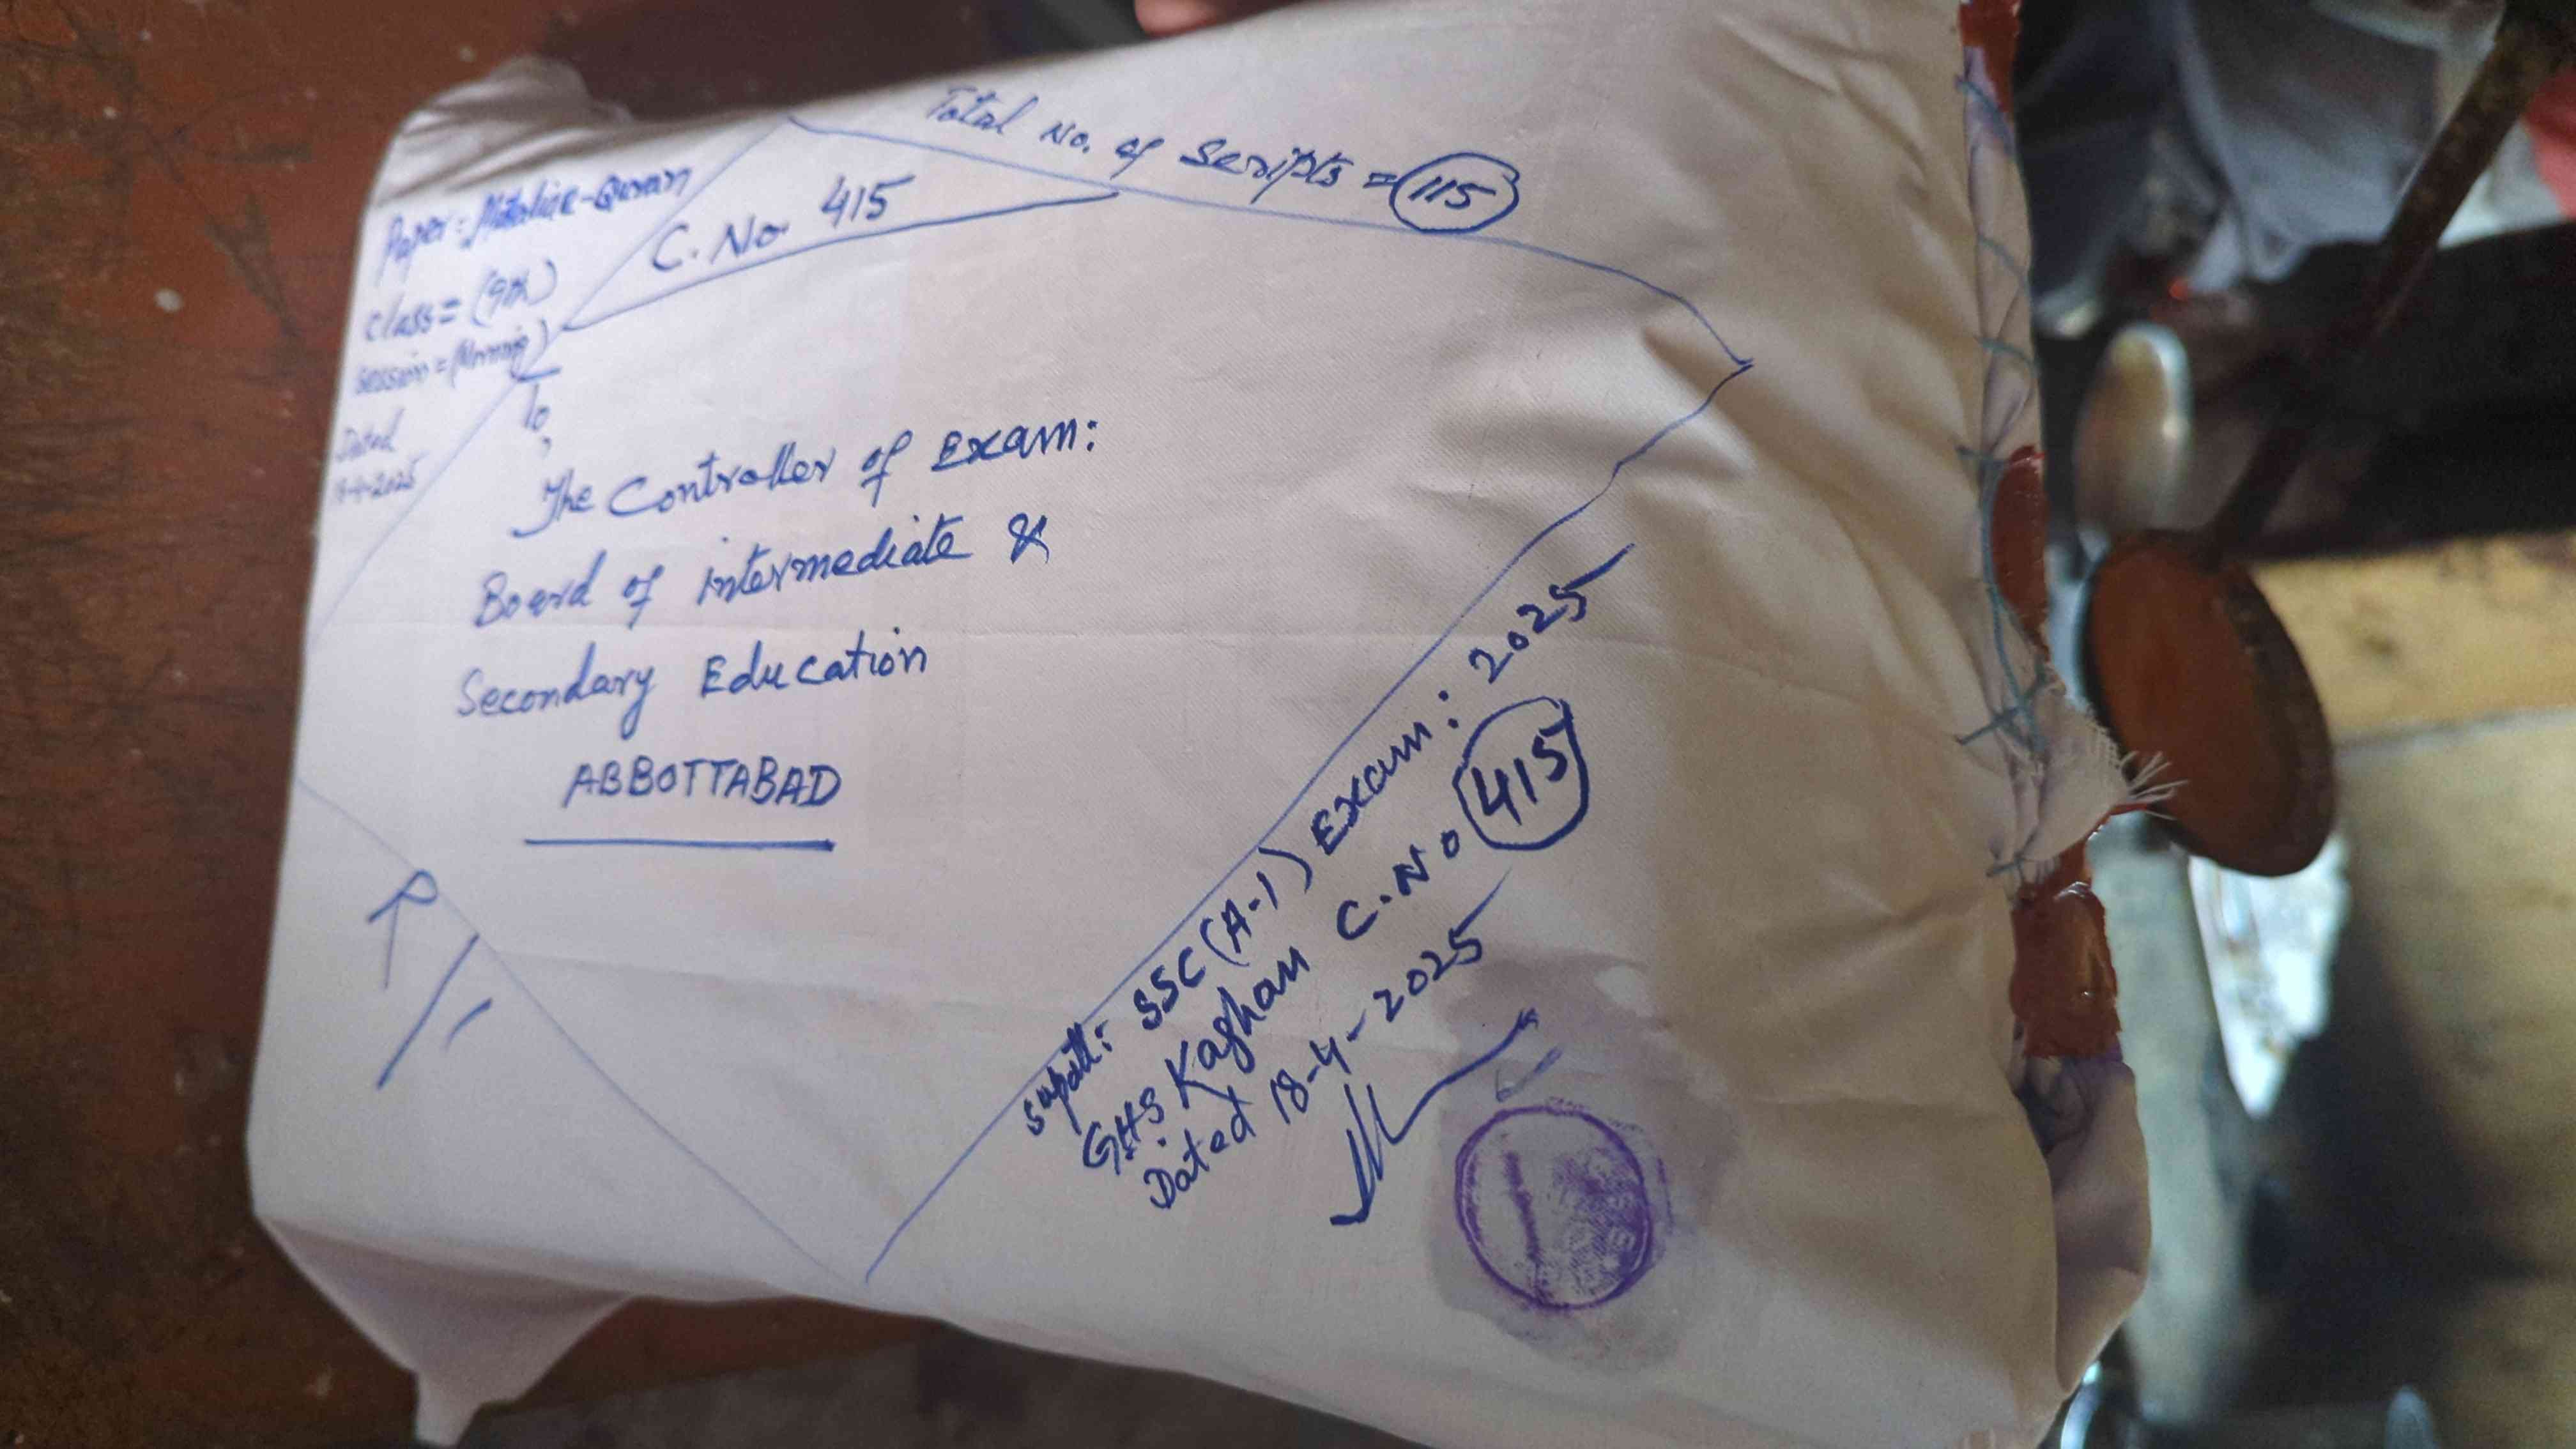 Total No. of Scripts = 115
Paper: Mutaliae-Quran
C. No. 415
class = (9th)
session = (Morning)
Dated
18-4-2025
To,
The Controller of Exam:
Board of intermediate &
Secondary Education
ABBOTTABAD
R/
Supdtt: SSC (A-1) Exam: 2025
GHS Kaghan C.No 415
Dated 18-4-2025